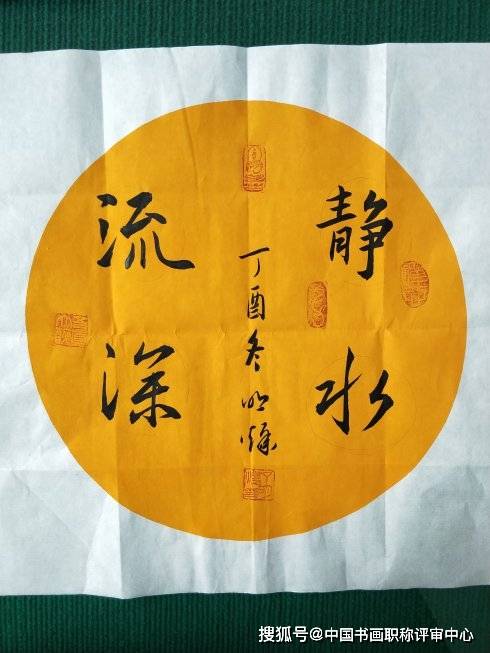 静水
丁酉冬明
流深
搜狐号@中国书画职称评审中心